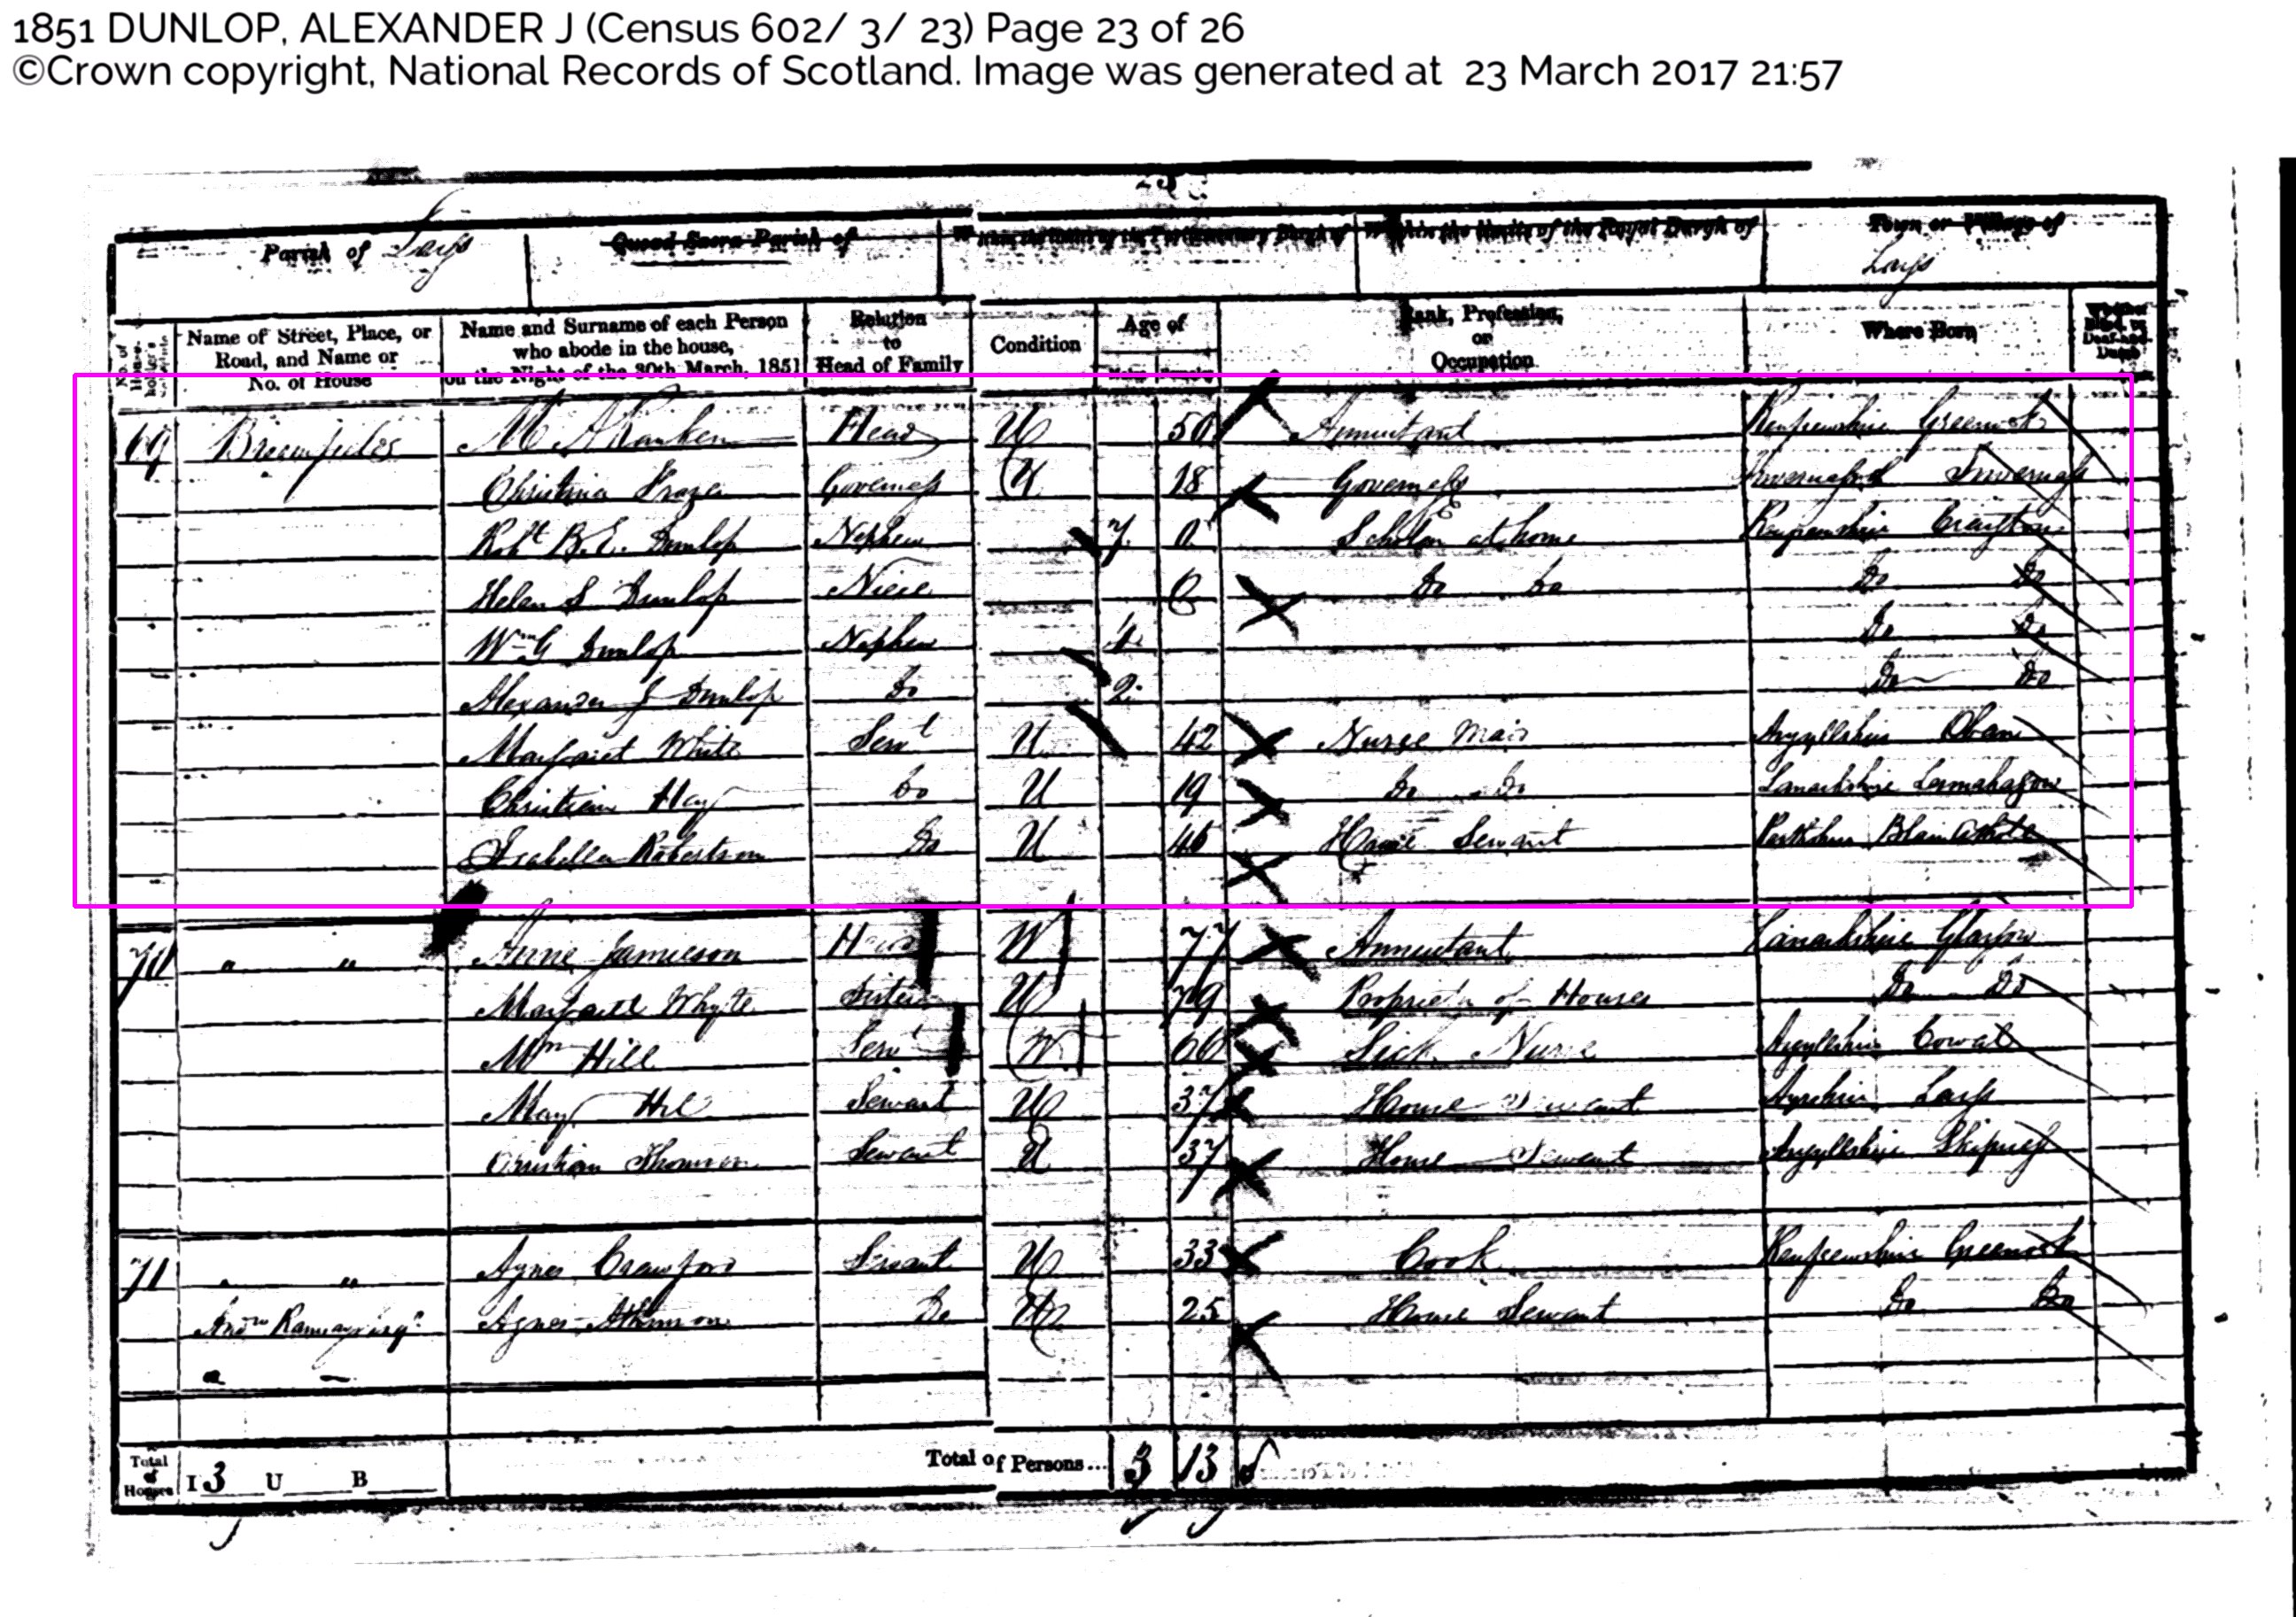 1851 DUNLOP, ALEXANDER J (Census 602/ 3/ 23) Page 23 of 26
©Crown copyright, National Records of Scotland. Image was generated at 23 March 2017 21:57
Parish of Largs Quoad Sacra Parish of Within the Limits of the Parliamentary Burgh of Within the Limits of the Royal Burgh of Town or Village of
Largs
No. of House- holder's Schedule Name of Street, Place, or Road, and Name or No. of House Name and Surname of each Person who abode in the house, on the Night of the 30th March, 1851 Relation to Head of Family Condition Age of Males Females Rank, Profession, or Occupation Where Born Whether Blind, or Deaf-and-Dumb
69 M A Rankin Head U 50 Annuitant Renfrewshire Greenock
Christina Frazer Governess U 18 Governess Inverness
Robt B.E. Dunlop Nephew 7 Scholar at home Renfrewshire
Helen S Dunlop Niece 6 Do Do Do Do
Wm G Dunlop Nephew 4 Do Do
Alexander J Dunlop Do 2 Do Do
Margaret White Servt U 42 Nurse Maid Argyllshire Oban
Christian Hay Do U 19 Do Do Lanarkshire Lesmahagow
Isabella Robertson Do U 46 House Servant Perthshire Blair Athole
70 " " Anne Jamieson Head W 77 Annuitant Lanarkshire Glasgow
Margaret Whyte Sister U 79 Proprietor of Houses Do Do
Hill Servt W 66 Sick Nurse Argyllshire Cowal
Mary U 37 House Servant Ayrshire Largs
Christian Thomson Servant U 37 House Servant Argyllshire Skipness
71 " " Agnes Crawford Servant U 33 Cook Renfrewshire Greenock
Andw Ramsay Esqr Agnes Do U 25 House Servant Do Do
Total of Houses I 3 U B Total of Persons... 3 13